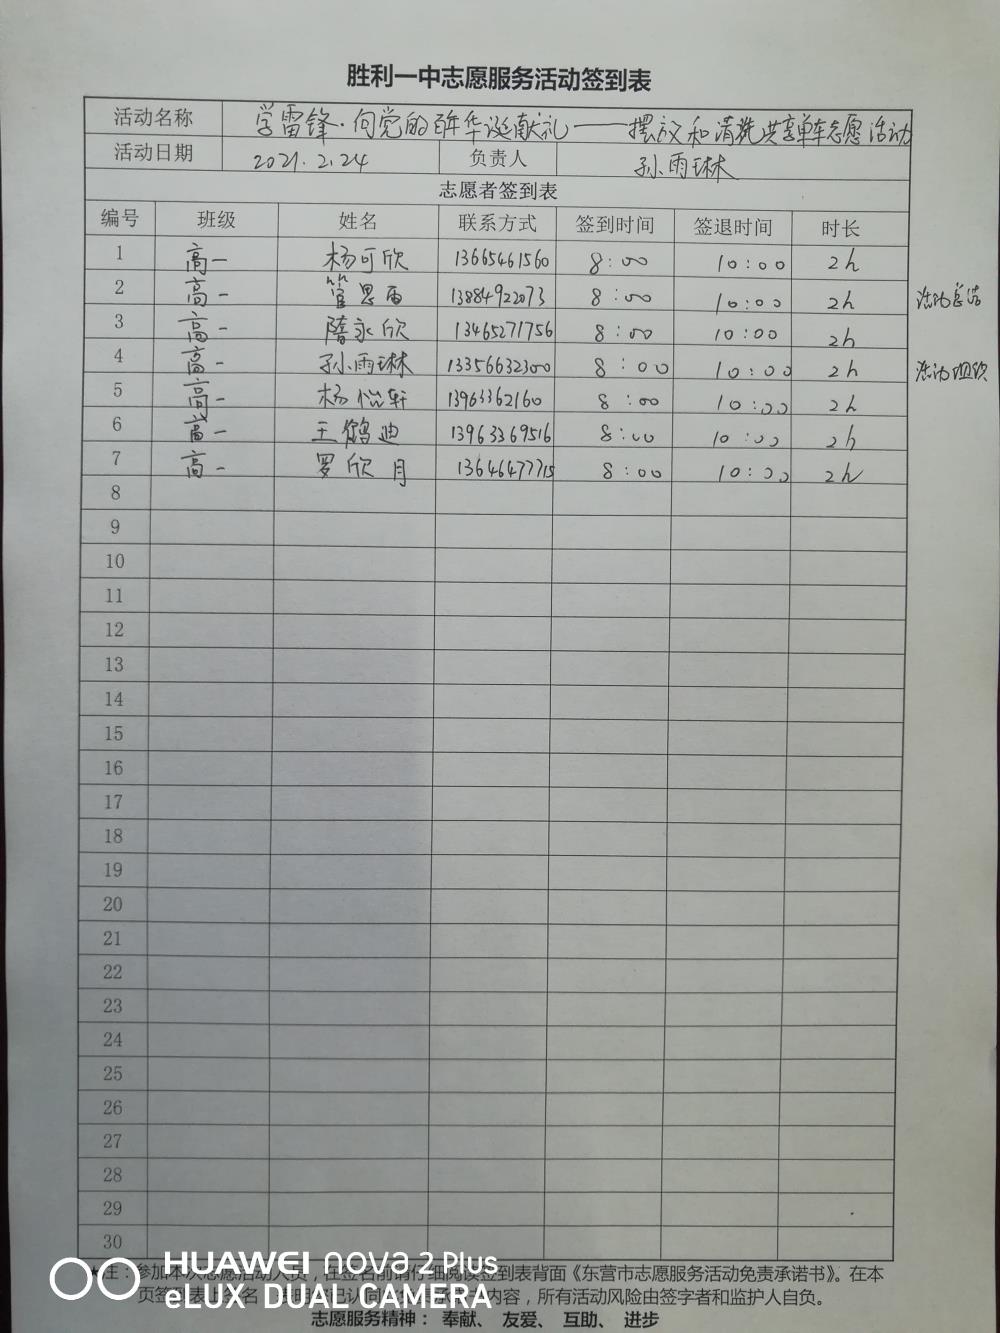 胜利一中志愿服务活动签到表
活动名称 学雷锋·向党的百年华诞献礼——摆放和清洗共享单车志愿活动
活动日期 2021.2.24 负责人 孙雨琳
志愿者签到表
编号 班级 姓名 联系方式 签到时间 签退时间 时长
1 高一 杨可欣 13665461560 8:00 10:00 2h
2 高一 管思雨 13884922073 8:00 10:00 2h 活动总结
3 高一 隋永欣 13465271756 8:00 10:00 2h
4 高一 孙雨琳 13356632300 8:00 10:00 2h 活动组织
5 高一 杨怡轩 13963362160 8:00 10:00 2h
6 高一 王鹤迪 13963369516 8:00 10:00 2h
7 高一 罗欣月 13646477715 8:00 10:00 2h
8
9
10
11
12
13
14
15
16
17
18
19
20
21
22
23
24
25
26
27
28
29
30
HUAWEI nova 2 Plus
eLUX DUAL CAMERA
注：参加本次志愿活动人员，在签名前请仔细阅读签到表背面《东营市志愿服务活动免责承诺书》。在本
页签 内容，所有活动风险由签字者和监护人自负。
志愿服务精神： 奉献、 友爱、 互助、 进步